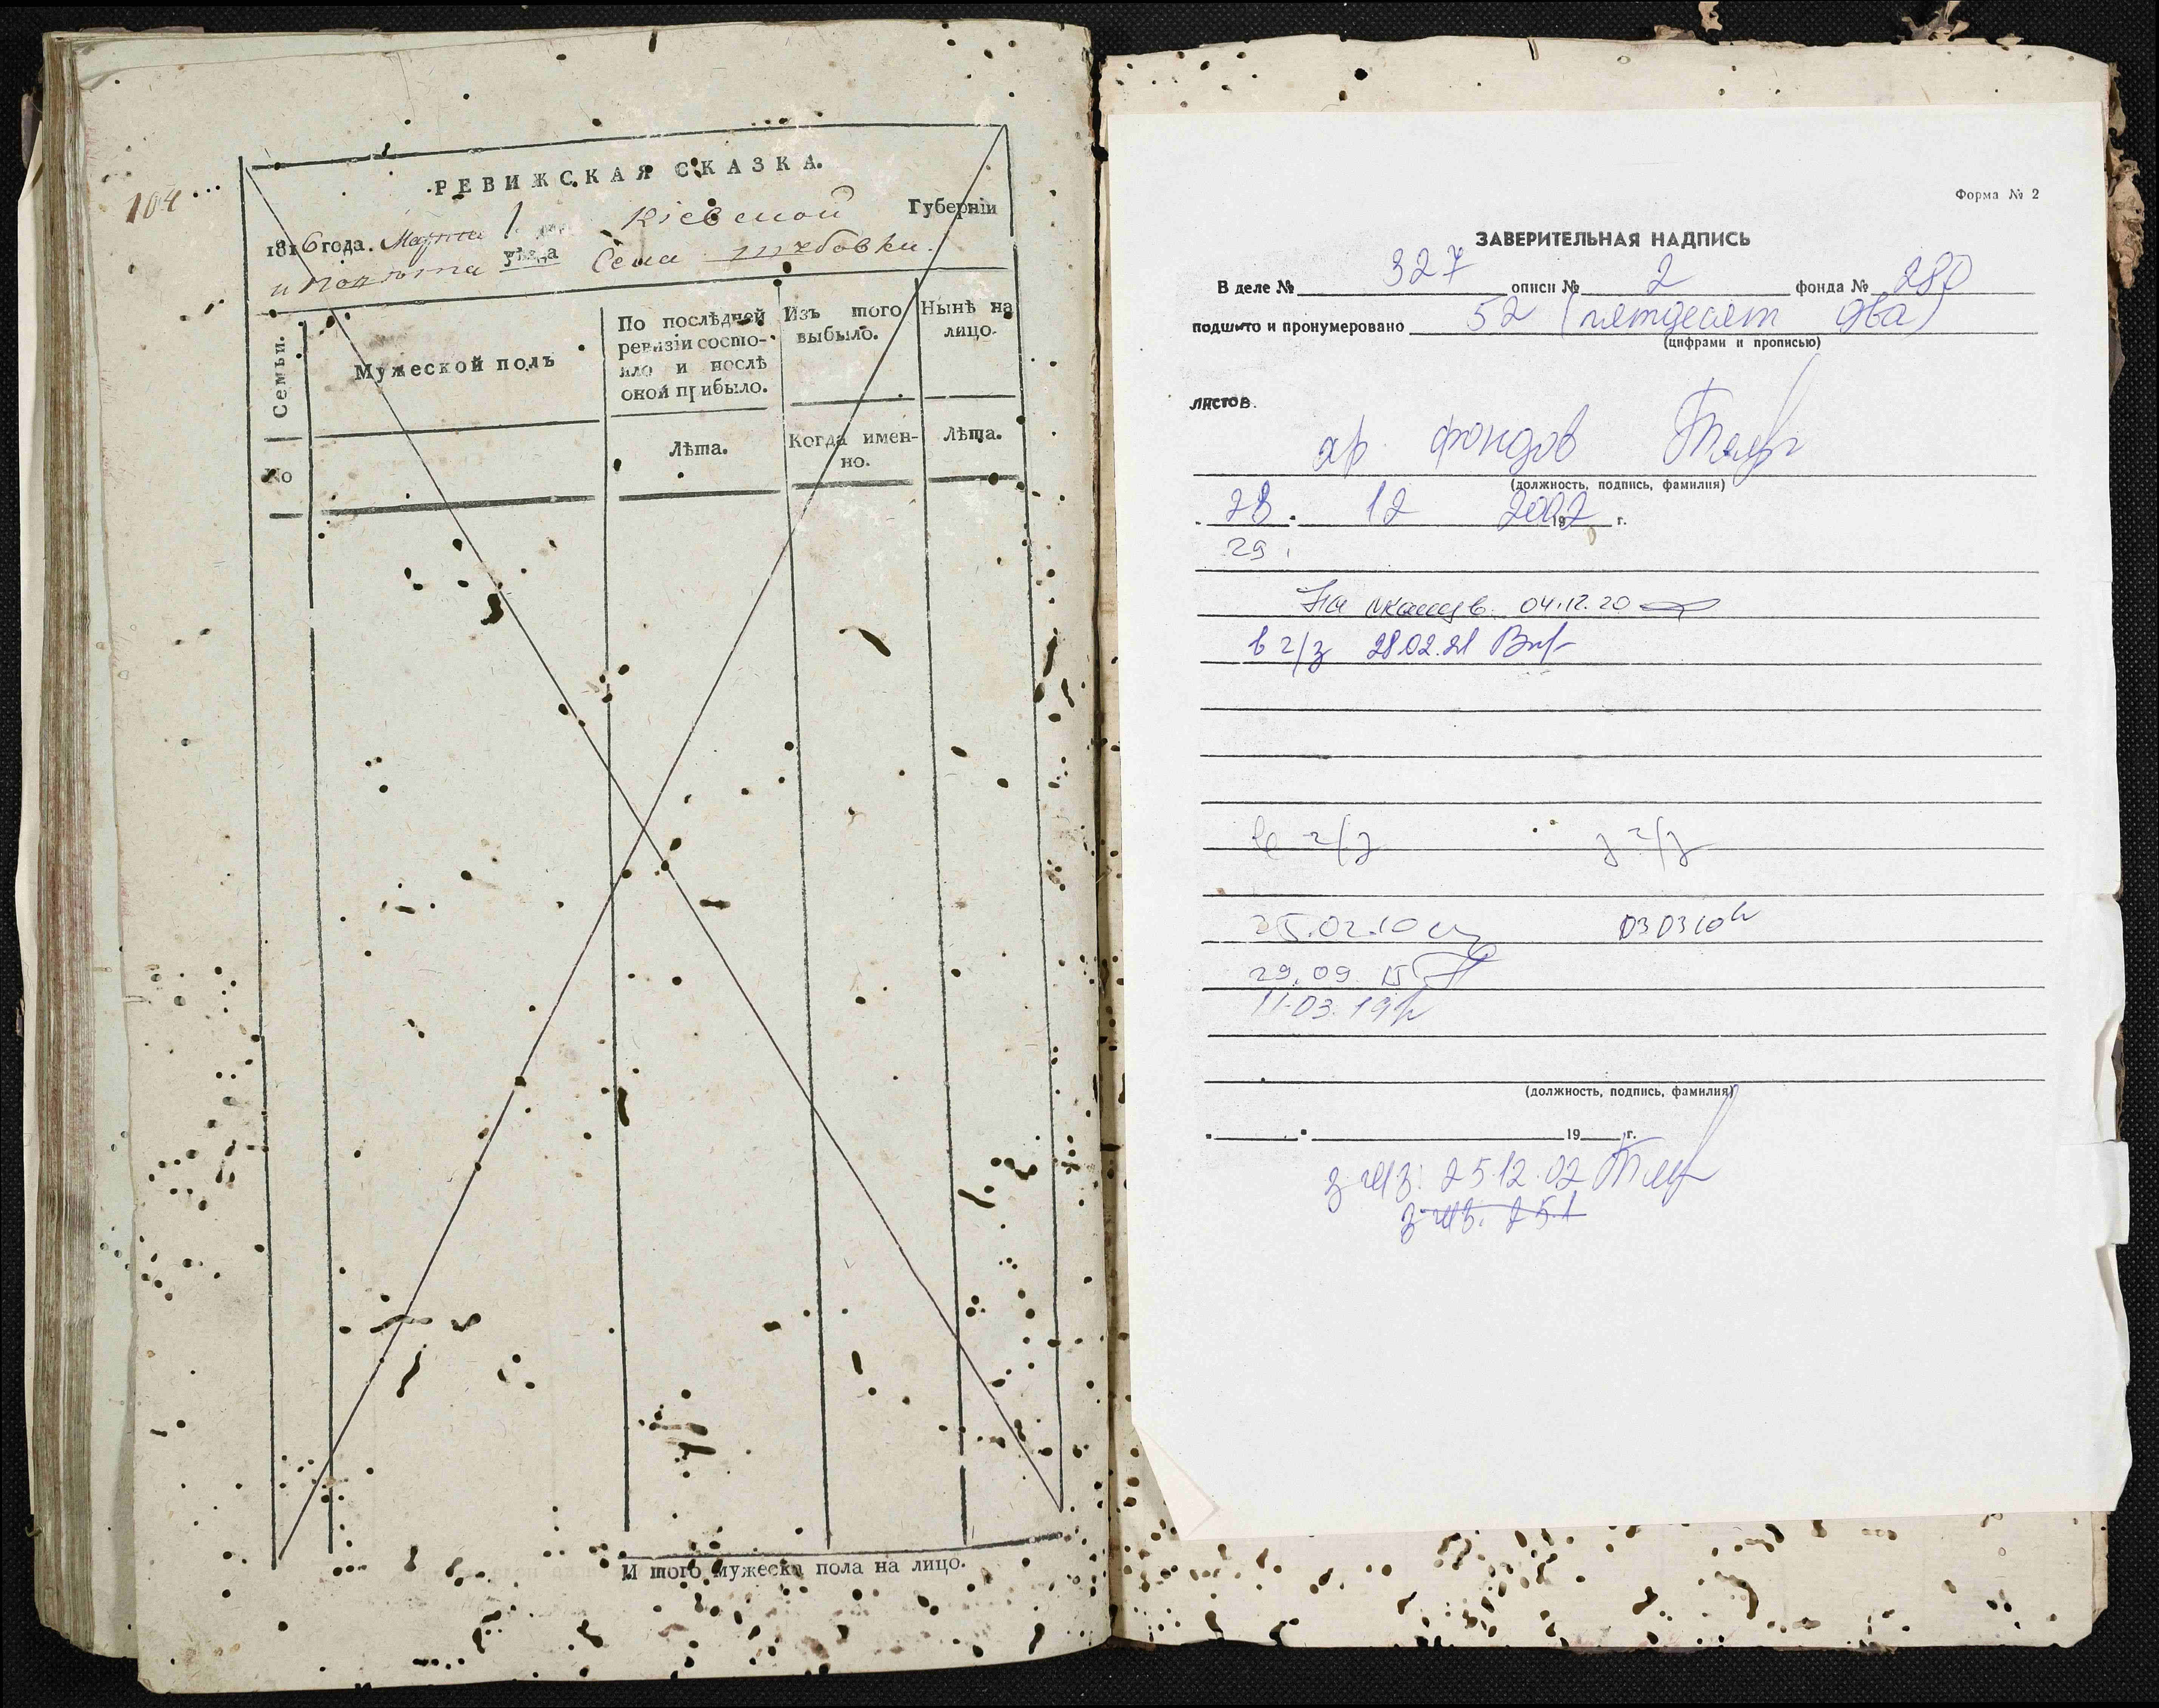 104
РЕВИЖСКАЯ СКАЗКА.
1816 года. Марта 1 дня Кіевской Губерніи
уѣзда Села
Семьи.
Мужеской полъ
По послѣдней
ревизіи состо-
яло и послѣ
оной прибыло.
Изъ того
выбыло.
Нынѣ на
лицо.
No
Лѣта.
Когда имен-
но.
Лѣта.
И того мужеска пола на лицо.
Форма № 2
ЗАВЕРИТЕЛЬНАЯ НАДПИСЬ
В деле № 327 описи № 2 фонда № 280
подшито и пронумеровано 52 (пятдесят два)
(цифрами и прописью)
листов.
фондов
(должность, подпись, фамилия)
28. 12 2002 19 г.
29.
На 04.12.20
в ч/з 28.02.21
в ч/з з ч/з
25.02.10 03 03 10
29.09. 15
11.03.19
(должность, подпись, фамилия)
19 г.
25.12.02
25.1